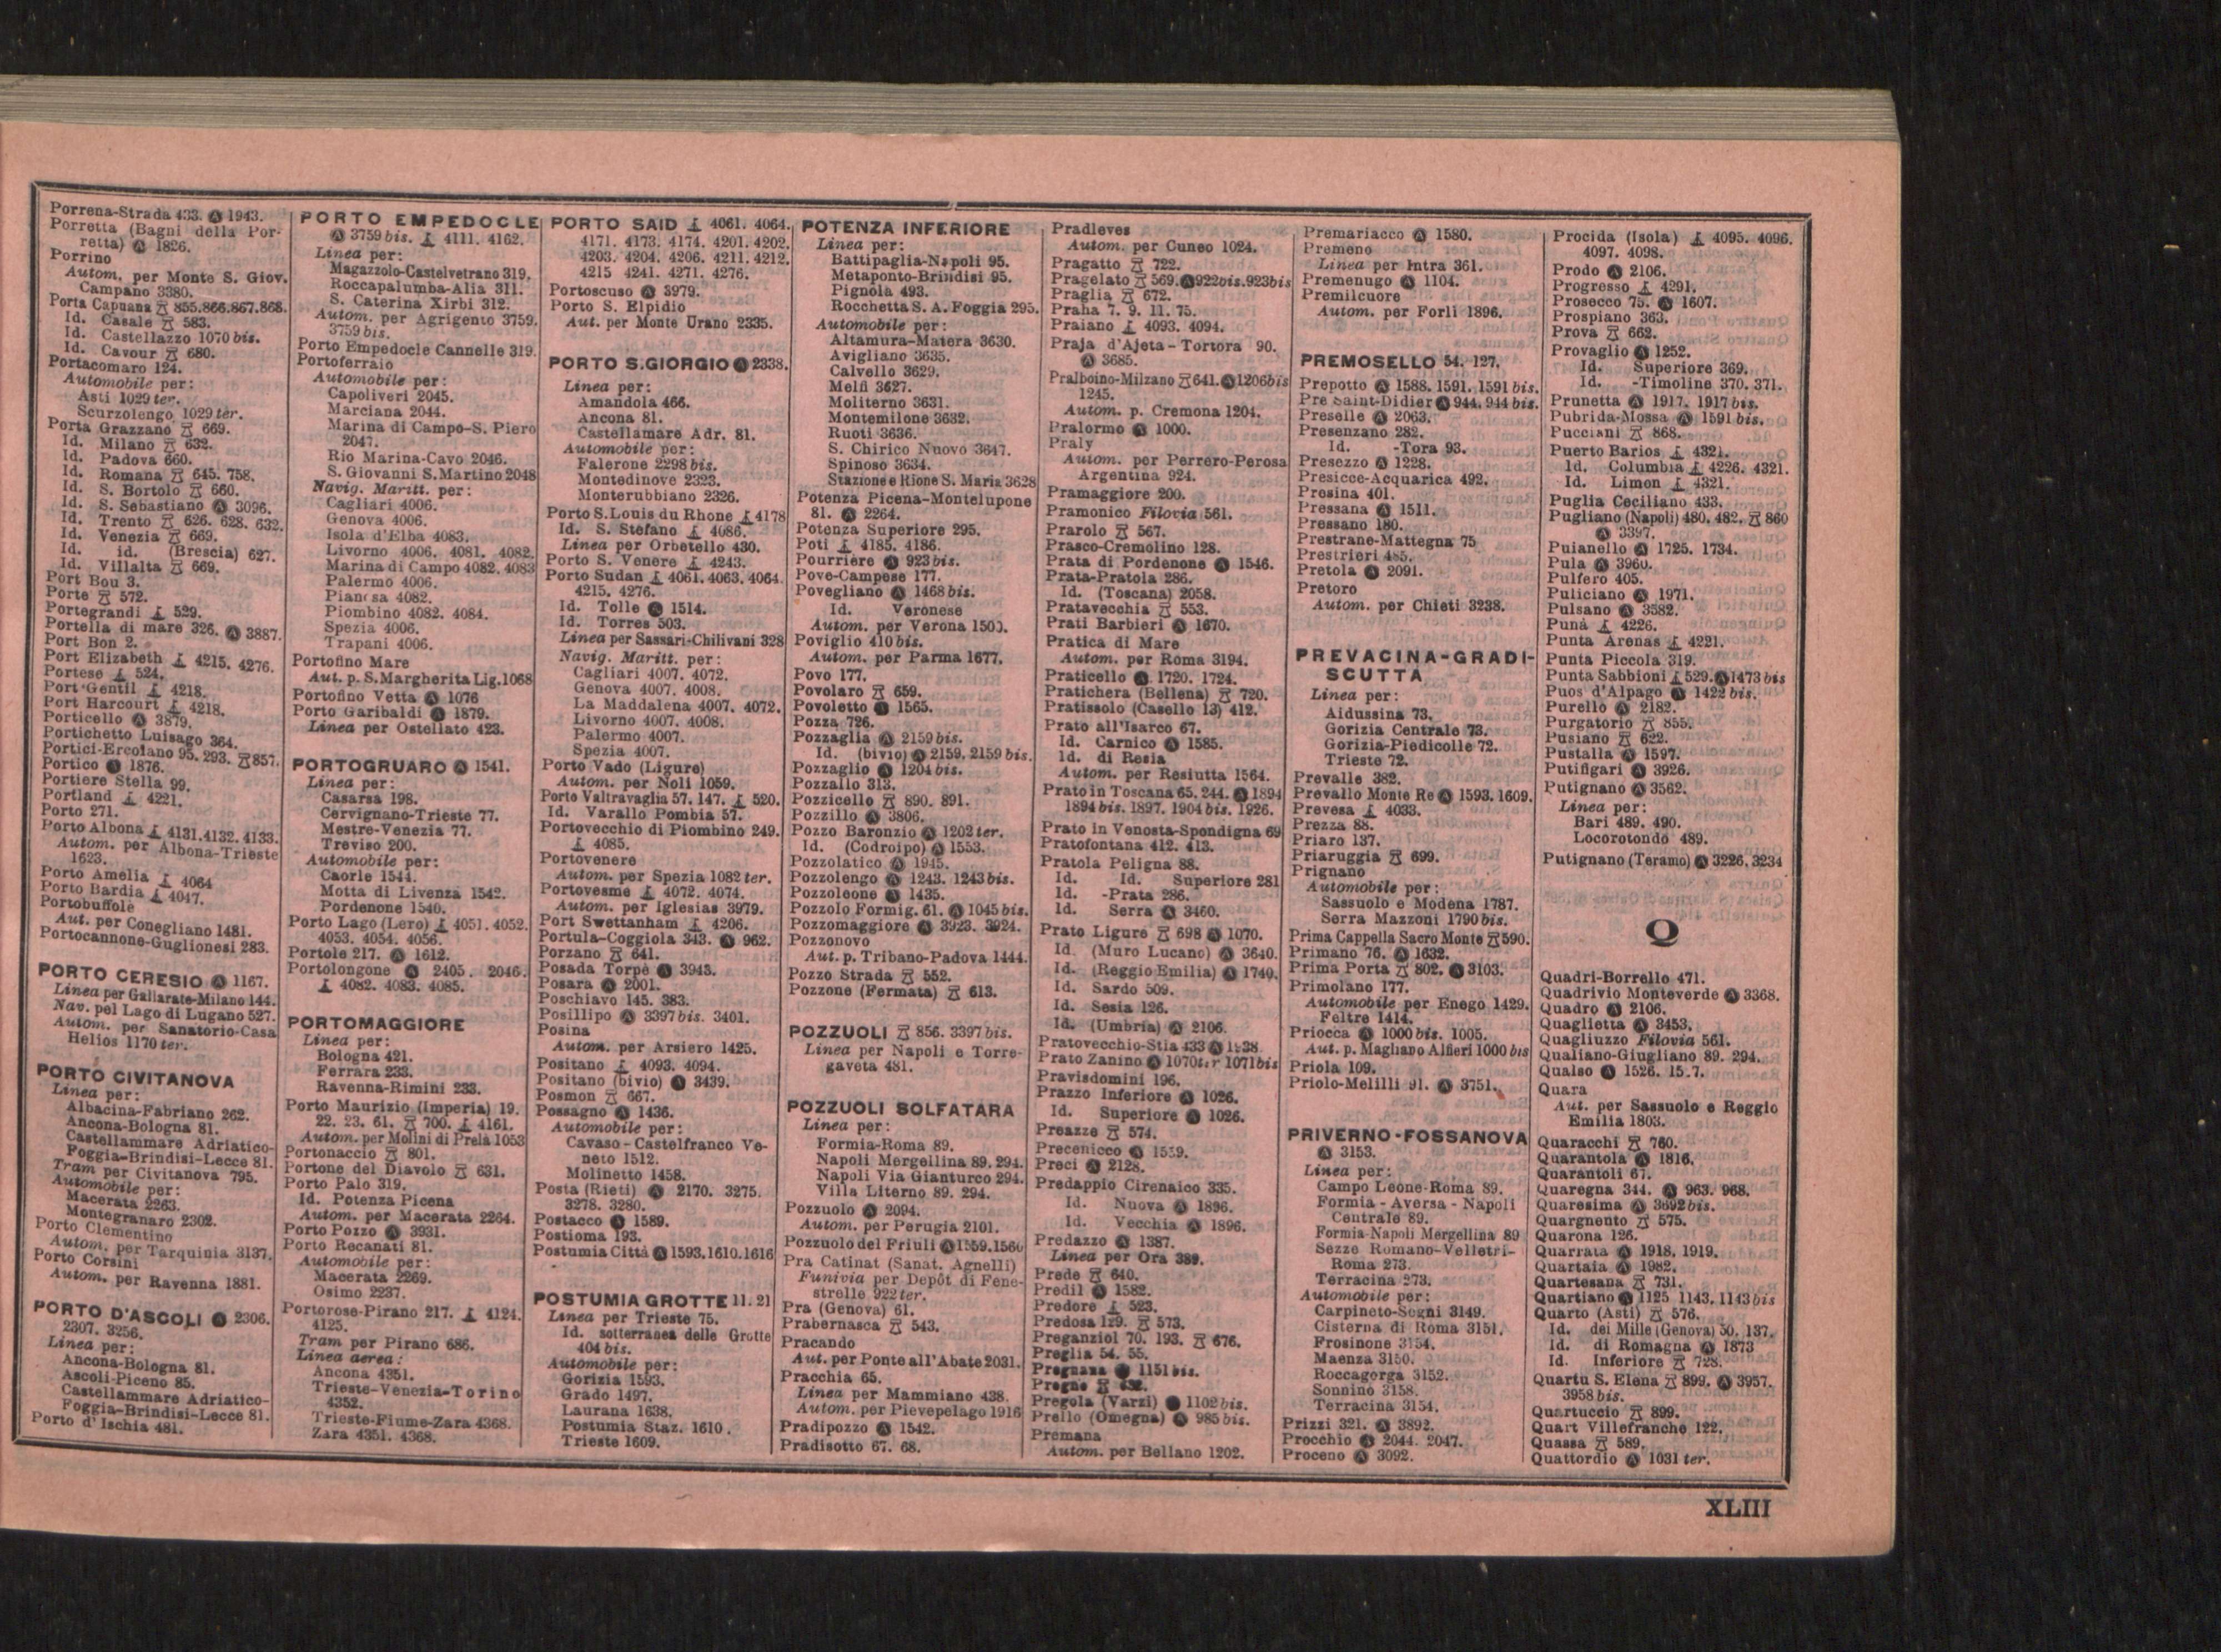 Porrena-Strada 433. Ⓐ 1943.
Porretta (Bagni della Por-
retta) Ⓐ 1826.
Porrino
Autom. per Monte S. Giov.
Campano 3380.
Porta Capuana 855.866.867.868.
Id. Casale 583.
Id. Castellazzo 1070 bis.
Id. Cavour 680.
Portacomaro 124.
Automobile per:
Asti 1029 ter.
Scurzolengo 1029 ter.
Porta Grazzano 669.
Id. Milano 632.
Id. Padova 660.
Id. Romana 645. 758.
Id. S. Bortolo 660.
Id. S. Sebastiano Ⓐ 3096.
Id. Trento 626. 628. 632.
Id. Venezia 669.
Id. id. (Brescia) 627.
Id. Villalta 669.
Port Bou 3.
Porte 572.
Portegrandi 529.
Portella di mare 326. Ⓐ 3887.
Port Bon 2.
Port Elizabeth 4215. 4276.
Portese 524.
Port Gentil 4218.
Port Harcourt 4218.
Porticello Ⓐ 3879.
Portichetto Luisago 364.
Portici-Ercolano 95. 293. 857.
Portico Ⓐ 1876.
Portiere Stella 99.
Portland 4221.
Porto 271.
Porto Albona 4131.4132.4133.
Autom. per Albona-Trieste
1623.
Porto Amelia 4064
Porto Bardia 4047.
Portobuffolè
Aut. per Conegliano 1481.
Portocannone-Guglionesi 283.
PORTO CERESIO Ⓐ 1167.
Linea per Gallarate-Milano 144.
Nav. pel Lago di Lugano 527.
Autom. per Sanatorio-Casa
Helios 1170 ter.
PORTO CIVITANOVA
Linea per:
Albacina-Fabriano 262.
Ancona-Bologna 81.
Castellammare Adriatico-
Foggia-Brindisi-Lecce 81.
Tram per Civitanova 795.
Automobile per:
Macerata 2263.
Montegranaro 2302.
Porto Clementino
Autom. per Tarquinia 3137.
Porto Corsini
Autom. per Ravenna 1881.
PORTO D'ASCOLI Ⓐ 2306.
2307. 3256.
Linea per:
Ancona-Bologna 81.
Ascoli-Piceno 85.
Castellammare Adriatico-
Foggia-Brindisi-Lecce 81.
Porto d'Ischia 481.
PORTO EMPEDOCLE
Ⓐ 3759 bis. 4111. 4162.
Linea per:
Magazzolo-Castelvetrano 319.
Roccapalumba-Alia 311.
S. Caterina Xirbi 312.
Autom. per Agrigento 3759.
3759 bis.
Porto Empedocle Cannelle 319.
Portoferraio
Automobile per:
Capoliveri 2045.
Marciana 2044.
Marina di Campo-S. Piero
2047.
Rio Marina-Cavo 2046.
S. Giovanni S. Martino 2048
Navig. Maritt. per:
Cagliari 4006.
Genova 4006.
Isola d'Elba 4083.
Livorno 4006. 4081. 4082.
Marina di Campo 4082. 4083
Palermo 4006.
Pianosa 4082.
Piombino 4082. 4084.
Spezia 4006.
Trapani 4006.
Portofino Mare
Aut. p. S. Margherita Lig. 1068
Portofino Vetta Ⓐ 1076
Porto Garibaldi Ⓐ 1879.
Linea per Ostellato 423.
PORTOGRUARO Ⓐ 1541.
Linea per:
Casarsa 198.
Cervignano-Trieste 77.
Mestre-Venezia 77.
Treviso 200.
Automobile per:
Caorle 1544.
Motta di Livenza 1542.
Pordenone 1540.
Porto Lago (Lero) 4051. 4052.
4053. 4054. 4056.
Portole 217. Ⓐ 1612.
Portolongone Ⓐ 2405. 2046.
4082. 4083. 4085.
PORTOMAGGIORE
Linea per:
Bologna 421.
Ferrara 233.
Ravenna-Rimini 233.
Porto Maurizio (Imperia) 19.
22. 23. 61. 700. 4161.
Autom. per Molini di Prelà 1053
Portonaccio 801.
Portone del Diavolo 631.
Porto Palo 319.
Id. Potenza Picena
Autom. per Macerata 2264.
Porto Pozzo Ⓐ 3931.
Porto Recanati 81.
Automobile per:
Macerata 2269.
Osimo 2237.
Portorose-Pirano 217. 4124.
4125.
Tram per Pirano 686.
Linea aerea:
Ancona 4351.
Trieste-Venezia-Torino
4352.
Trieste-Fiume-Zara 4368.
Zara 4351. 4368.
PORTO SAID 4061. 4064.
4171. 4173. 4174. 4201. 4202.
4203. 4204. 4206. 4211. 4212.
4215 4241. 4271. 4276.
Portoscuso Ⓐ 3979.
Porto S. Elpidio
Aut. per Monte Urano 2335.
PORTO S.GIORGIO Ⓐ 2338.
Linea per:
Amandola 466.
Ancona 81.
Castellamare Adr. 81.
Automobile per:
Falerone 2298 bis.
Montedinove 2323.
Monterubbiano 2326.
Porto S. Louis du Rhone 4178
Id. S. Stefano 4086.
Linea per Orbetello 430.
Porto S. Venere 4243.
Porto Sudan 4061. 4063. 4064.
4215. 4276.
Id. Tolle Ⓐ 1514.
Id. Torres 503.
Linea per Sassari-Chilivani 328
Navig. Maritt. per:
Cagliari 4007. 4072.
Genova 4007. 4008.
La Maddalena 4007. 4072.
Livorno 4007. 4008.
Palermo 4007.
Spezia 4007.
Porto Vado (Ligure)
Autom. per Noli 1059.
Porto Valtravaglia 57. 147. 520.
Id. Varallo Pombia 57.
Portovecchio di Piombino 249.
4085.
Portovenere
Autom. per Spezia 1082 ter.
Portovesme 4072. 4074.
Autom. per Iglesias 3979.
Port Swettanham 4206.
Portula-Coggiola 343. Ⓐ 962.
Porzano 641.
Posada Torpè Ⓐ 3943.
Posara Ⓐ 2001.
Poschiavo 145. 383.
Posillipo Ⓐ 3397 bis. 3401.
Posina
Autom. per Arsiero 1425.
Positano 4093. 4094.
Positano (bivio) Ⓐ 3439.
Posmon 667.
Possagno Ⓐ 1436.
Automobile per:
Cavaso - Castelfranco Ve-
neto 1512.
Molinetto 1458.
Posta (Rieti) Ⓐ 2170. 3275.
3278. 3280.
Postacco Ⓐ 1589.
Postioma 193.
Postumia Città Ⓐ 1593.1610.1616
POSTUMIA GROTTE 11. 21
Linea per Trieste 75.
Id. sotterranea delle Grotte
404 bis.
Automobile per:
Gorizia 1593.
Grado 1497.
Laurana 1638.
Postumia Staz. 1610.
Trieste 1609.
POTENZA INFERIORE
Linea per:
Battipaglia-Napoli 95.
Metaponto-Brindisi 95.
Pignola 493.
Rocchetta S. A. Foggia 295.
Automobile per:
Altamura-Matera 3630.
Avigliano 3635.
Calvello 3629.
Melfi 3627.
Moliterno 3631.
Montemilone 3632.
Ruoti 3636.
S. Chirico Nuovo 3647.
Spinoso 3634.
Stazione e Rione S. Maria 3628
Potenza Picena-Montelupone
81. Ⓐ 2264.
Potenza Superiore 295.
Poti 4185. 4186.
Pourrière Ⓐ 923 bis.
Pove-Campese 177.
Povegliano Ⓐ 1468 bis.
Id. Veronese
Autom. per Verona 1500.
Poviglio 410 bis.
Autom. per Parma 1677.
Povo 177.
Povolaro 659.
Povoletto Ⓐ 1565.
Pozza 726.
Pozzaglia Ⓐ 2159 bis.
Id. (bivio) Ⓐ 2159. 2159 bis.
Pozzaglio Ⓐ 1204 bis.
Pozzallo 313.
Pozzicello 890. 891.
Pozzillo Ⓐ 3806.
Pozzo Baronzio Ⓐ 1202 ter.
Id. (Codroipo) Ⓐ 1553.
Pozzolatico Ⓐ 1945.
Pozzolengo Ⓐ 1243. 1243 bis.
Pozzoleone Ⓐ 1435.
Pozzolo Formig. 61. Ⓐ 1045 bis.
Pozzomaggiore Ⓐ 3923. 3924.
Pozzonovo
Aut. p. Tribano-Padova 1444.
Pozzo Strada 552.
Pozzone (Fermata) 613.
POZZUOLI 856. 3397 bis.
Linea per Napoli e Torre-
gaveta 481.
POZZUOLI SOLFATARA
Linea per:
Formia-Roma 89.
Napoli Mergellina 89. 294.
Napoli Via Gianturco 294.
Villa Literno 89. 294.
Pozzuolo Ⓐ 2094.
Autom. per Perugia 2101.
Pozzuolo del Friuli Ⓐ 1559.1560
Pra Catinat (Sanat. Agnelli)
Funivia per Depôt di Fene-
strelle 922 ter.
Pra (Genova) 61.
Prabernasca 543.
Pracando
Aut. per Ponte all'Abate 2031.
Pracchia 65.
Linea per Mammiano 438.
Autom. per Pievepelago 1916
Pradipozzo Ⓐ 1542.
Pradisotto 67. 68.
Pradleves
Autom. per Cuneo 1024.
Pragatto 722.
Pragelato 569. Ⓐ 922bis.923bis
Praglia 672.
Praha 7. 9. 11. 75.
Praiano 4093. 4094.
Praja d'Ajeta - Tortora 90.
Ⓐ 3685.
Pralboino-Milzano 641. Ⓐ 1206bis
1245.
Autom. p. Cremona 1204.
Pralormo Ⓐ 1000.
Praly
Autom. per Perrero-Perosa
Argentina 924.
Pramaggiore 200.
Pramonico Filovia 561.
Prarolo 567.
Prasco-Cremolino 128.
Prata di Pordenone Ⓐ 1546.
Prata-Pratola 286.
Id. (Toscana) 2058.
Pratavecchia 553.
Prati Barbieri Ⓐ 1670.
Pratica di Mare
Autom. per Roma 3194.
Praticello Ⓐ 1720. 1724.
Pratichera (Bellena) 720.
Pratissolo (Casello 13) 412.
Prato all'Isarco 67.
Id. Carnico Ⓐ 1585.
Id. di Resia
Autom. per Resiutta 1564.
Prato in Toscana 65. 244. Ⓐ 1894
1894 bis. 1897. 1904 bis. 1926.
Prato in Venosta-Spondigna 69
Pratofontana 412. 413.
Pratola Peligna 88.
Id. Id. Superiore 281
Id. -Prata 286.
Id. Serra Ⓐ 3460.
Prato Ligure 698 Ⓐ 1070.
Id. (Muro Lucano) Ⓐ 3640.
Id. (Reggio Emilia) Ⓐ 1740.
Id. Sardo 509.
Id. Sesia 126.
Id. (Umbria) Ⓐ 2106.
Pratovecchio-Stia 433 Ⓐ 1938.
Prato Zanino Ⓐ 1070ter 1071bis
Pravisdomini 196.
Prazzo Inferiore Ⓐ 1026.
Id. Superiore Ⓐ 1026.
Preazze 574.
Precenicco Ⓐ 1559.
Preci Ⓐ 2128.
Predappio Cirenaico 335.
Id. Nuova Ⓐ 1896.
Id. Vecchia Ⓐ 1896.
Predazzo Ⓐ 1387.
Linea per Ora 389.
Prede 640.
Predil Ⓐ 1582.
Predore 523.
Predosa 129. 573.
Preganziol 70. 193. 676.
Preglia 54. 55.
Pregnana Ⓐ 1151 bis.
Pregno 632.
Pregola (Varzi) Ⓐ 1102 bis.
Prello (Omegna) Ⓐ 985 bis.
Premana
Autom. per Bellano 1202.
Premariacco Ⓐ 1580.
Premeno
Linea per Intra 361.
Premenugo Ⓐ 1104.
Premilcuore
Autom. per Forlì 1896.
PREMOSELLO 54. 127.
Prepotto Ⓐ 1588. 1591. 1591 bis.
Pre Saint-Didier Ⓐ 944. 944 bis.
Preselle Ⓐ 2063.
Presenzano 282.
Id. -Tora 93.
Presezzo Ⓐ 1228.
Presicce-Acquarica 492.
Presina 401.
Pressana Ⓐ 1511.
Pressano 180.
Prestrane-Mattegna 75
Prestrieri 485.
Pretola Ⓐ 2091.
Pretoro
Autom. per Chieti 3238.
PREVACINA-GRADI-
SCUTTA
Linea per:
Aidussina 73.
Gorizia Centrale 73.
Gorizia-Piedicolle 72.
Trieste 72.
Prevalle 382.
Prevallo Monte Re Ⓐ 1593. 1609.
Prevesa 4033.
Prezza 88.
Priaro 137.
Priaruggia 699.
Prignano
Automobile per:
Sassuolo e Modena 1787.
Serra Mazzoni 1790 bis.
Prima Cappella Sacro Monte 590.
Primano 76. Ⓐ 1632.
Prima Porta 802. Ⓐ 3103.
Primolano 177.
Automobile per Enego 1429.
Feltre 1414.
Priocca Ⓐ 1000 bis. 1005.
Aut. p. Magliano Alfieri 1000 bis
Priola 109.
Priolo-Melilli 91. Ⓐ 3751.
PRIVERNO-FOSSANOVA
Ⓐ 3153.
Linea per:
Campo Leone-Roma 89.
Formia - Aversa - Napoli
Centrale 89.
Formia-Napoli Mergellina 89
Sezze Romano-Velletri-
Roma 273.
Terracina 273.
Automobile per:
Carpineto-Segni 3149.
Cisterna di Roma 3151.
Frosinone 3154.
Maenza 3150.
Roccagorga 3152.
Sonnino 3158.
Terracina 3154.
Prizzi 321. Ⓐ 3892.
Procchio Ⓐ 2044. 2047.
Proceno Ⓐ 3092.
Procida (Isola) 4095. 4096.
4097. 4098.
Prodo Ⓐ 2106.
Progresso 4291.
Prosecco 75. Ⓐ 1607.
Prospiano 363.
Prova 662.
Provaglio Ⓐ 1252.
Id. Superiore 369.
Id. -Timoline 370. 371.
Prunetta Ⓐ 1917. 1917 bis.
Pubrida-Mossa Ⓐ 1591 bis.
Pucciani 868.
Puerto Barios 4321.
Id. Columbia 4226. 4321.
Id. Limon 4321.
Puglia Ceciliano 433.
Pugliano (Napoli) 480. 482. 860
Ⓐ 3397.
Puianello Ⓐ 1725. 1734.
Pula Ⓐ 3960.
Pulfero 405.
Puliciano Ⓐ 1971.
Pulsano Ⓐ 3582.
Punà 4226.
Punta Arenas 4221.
Punta Piccola 319.
Punta Sabbioni 529. Ⓐ 1473 bis
Puos d'Alpago Ⓐ 1422 bis.
Purello Ⓐ 2182.
Purgatorio 855.
Pusiano 622.
Pustalla Ⓐ 1597.
Putifigari Ⓐ 3926.
Putignano Ⓐ 3562.
Linea per:
Bari 489. 490.
Locorotondo 489.
Putignano (Teramo) Ⓐ 3226. 3234
Q
Quadri-Borrello 471.
Quadrivio Monteverde Ⓐ 3368.
Quadro Ⓐ 2106.
Quaglietta Ⓐ 3453.
Quagliuzzo Filovia 561.
Qualiano-Giugliano 89. 294.
Qualso Ⓐ 1526.
Quara
Aut. per Sassuolo e Reggio
Emilia 1803.
Quaracchi 760.
Quarantola Ⓐ 1816.
Quarantoli 67.
Quaregna 344. Ⓐ 963. 968.
Quaresima Ⓐ 3692 bis.
Quargnento 575.
Quarona 126.
Quarrata Ⓐ 1918. 1919.
Quartaia Ⓐ 1982.
Quartesana 731.
Quartiano Ⓐ 1125 1143. 1143 bis
Quarto (Asti) 576.
Id. dei Mille (Genova) 50. 137.
Id. di Romagna Ⓐ 1873
Id. Inferiore 728.
Quartu S. Elena 899. Ⓐ 3957.
3958 bis.
Quartuccio 899.
Quart Villefranche 122.
Quassa 589.
Quattordio Ⓐ 1031 ter.
XLIII